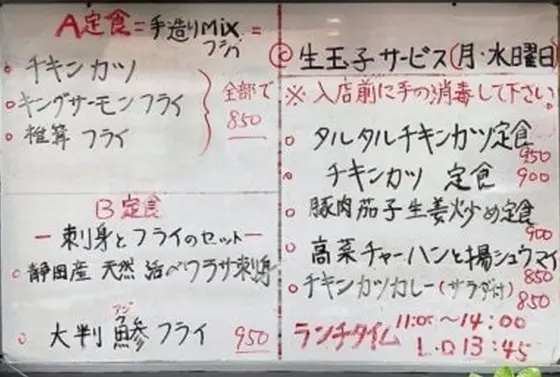 A定食=手造りMix=
フライ
○チキンカツ
○キングサーモンフライ
○椎茸フライ
全部で
850
B定食
ー刺身とフライのセットー
○静岡産 天然 活ベワラサ刺身
アジ
○大判鯵フライ 950
生玉子サービス(月・水曜日)
※入店前に手の消毒して下さい
○タルタルチキンカツ定食
950
○チキンカツ 定食 900
○豚肉茄子生姜炒め定食
900
○高菜チャーハンと揚シュウマイ
850
○チキンカツカレー(サラダ付)
850
ランチタイム 11:05〜14:00
L.O 13:45